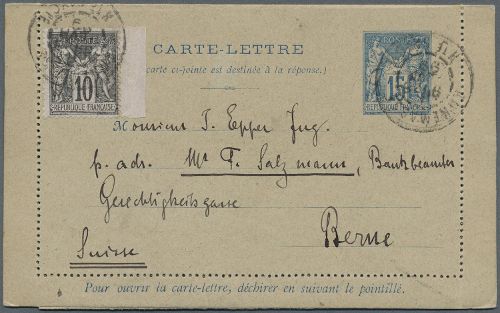 CARTE-LETTRE
(carte ci-jointe est destinée à la réponse.)
10
REPUBLIQUE FRANÇAISE
15
REPUBLIQUE FRANÇAISE
Monsieur J. Epper Jng.
p. adr. Mr F. Salzmann, Bankbeamter
Gerechtigkeitsgasse
Berne
Suisse
Pour ouvrir la carte-lettre, déchirer en suivant le pointillé.